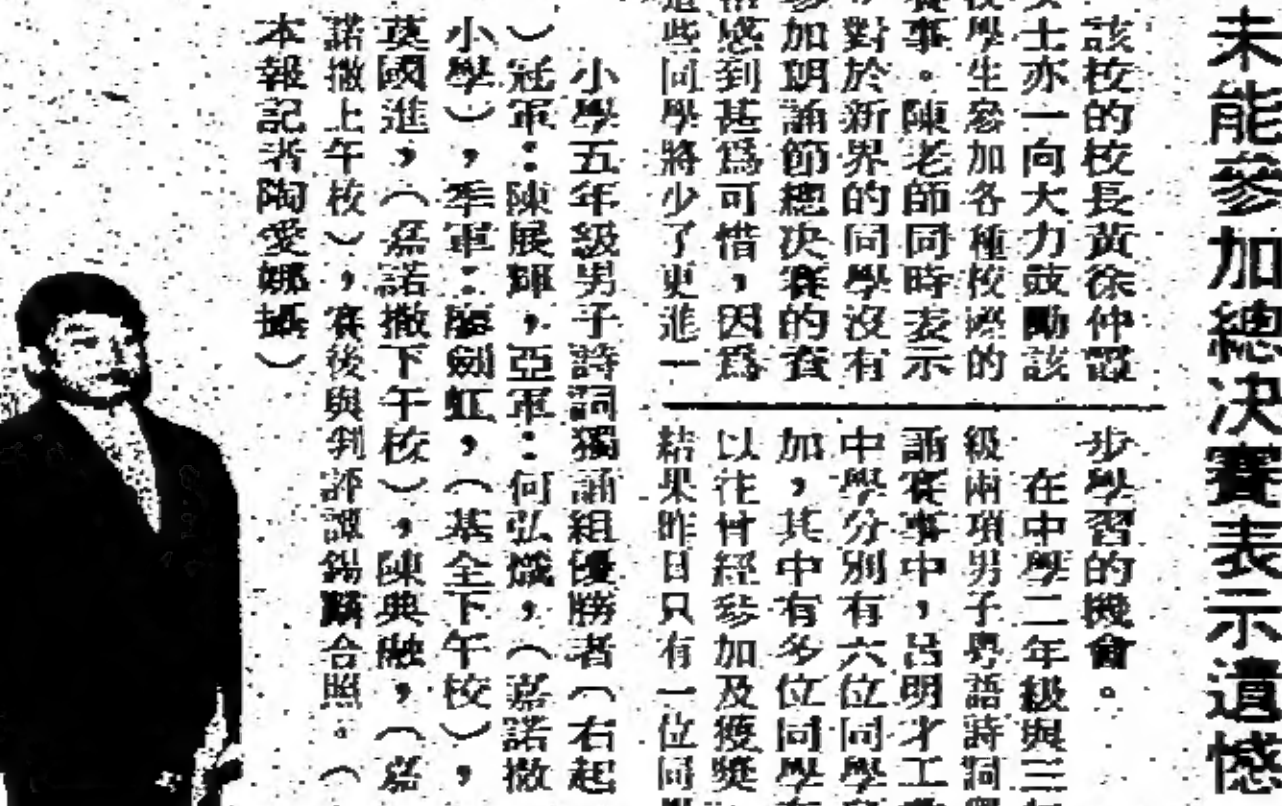 未能參加總决賽表示遺憾
該校的校長黃徐仲
士亦一向大力鼓勵該
學生參加各種校際的
賽事。陳老師同時表示
,對於新界的同學沒有
參加朗誦節總决賽的資
感到甚爲可惜,因爲
這些同學將少了更進一
步學習的機會。
在中學二年級與三
級兩項男子粵語詩詞
誦賽事中,呂明才工
中學分別有六位同學
加,其中有多位同學
以往曾經參加及獲獎
結果昨日只有一位同
小學五年級男子詩詞獨誦組優勝者(右起
)冠軍:陳展輝,亞軍:何弘熾,(嘉諾撒
小學),季軍:廖劍虹,(基全下午校),
莫國進,(嘉諾撒下午校),陳典融,(嘉
諾撒上午校),賽後與判評譚錫麟合照。(
本報記者陶愛娜攝)